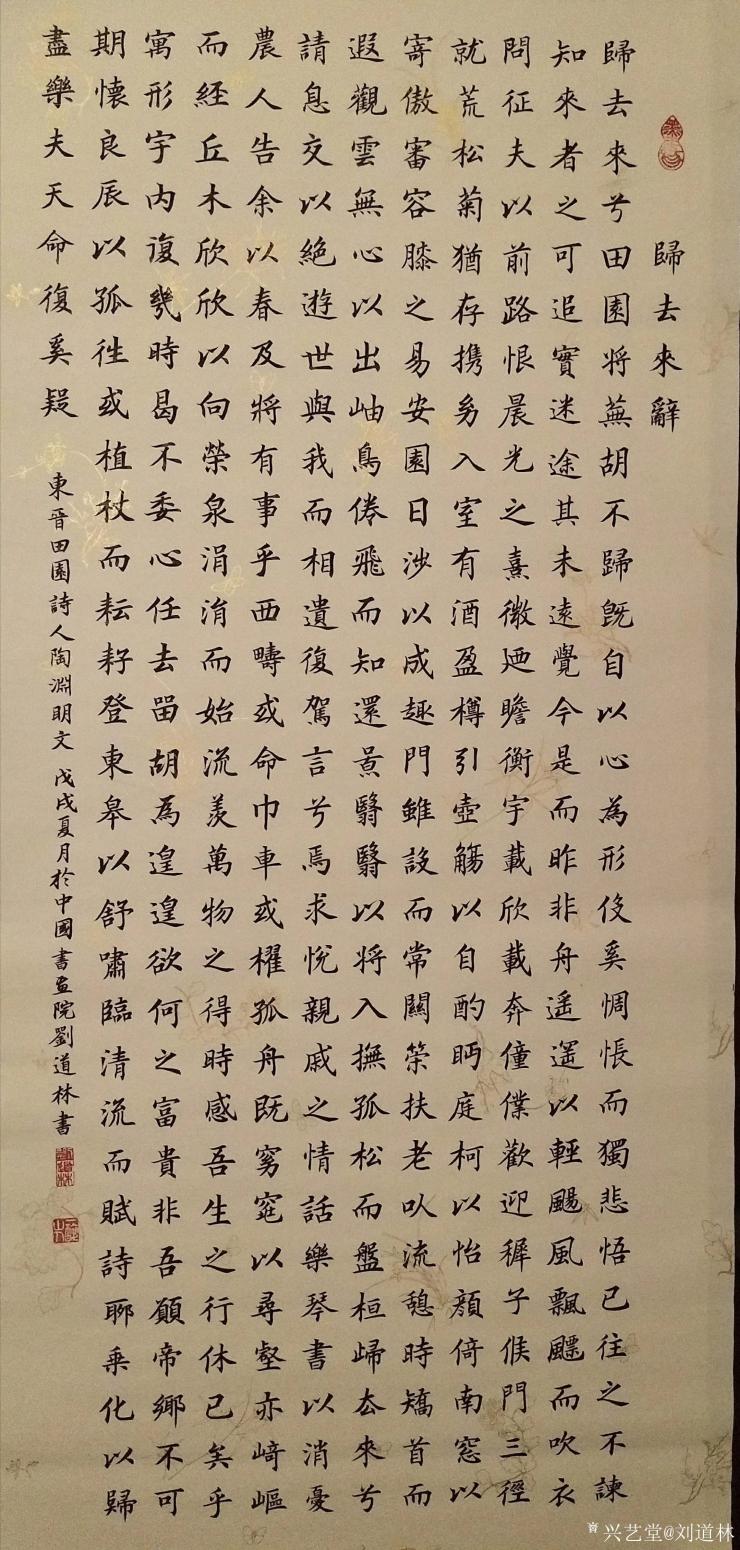 歸去來辭
歸去來兮田園将蕪胡不歸旣自以心為形役奚惆悵而獨悲悟已往之不諫
知來者之可追實迷途其未遠覺今是而昨非舟遥遥以輕颺風飄飄而吹衣
問征夫以前路恨晨光之熹微廼瞻衡宇載欣載奔僮僕歡迎稺子候門三徑
就荒松菊猶存携幼入室有酒盈樽引壺觴以自酌眄庭柯以怡顏倚南窓以
寄傲審容膝之易安園日涉以成趣門雖設而常關策扶老以流憩時矯首而
遐觀雲無心以出岫鳥倦飛而知還景翳翳以将入撫孤松而盤桓歸去來兮
請息交以絶遊世與我而相遺復駕言兮焉求悅親戚之情話樂琴書以消憂
農人告余以春及將有事乎西疇或命巾車或櫂孤舟既窈窕以尋壑亦崎嶇
而經丘木欣欣以向榮泉涓涓而始流羨萬物之得時感吾生之行休已矣乎
寓形宇内復幾時曷不委心任去畱胡為遑遑欲何之富貴非吾願帝鄉不可
期懷良辰以孤往或植杖而耘耔登東皋以舒嘯臨清流而賦詩聊乗化以歸
盡樂夫天命復奚疑
東晉田園詩人陶淵明文 戊戌夏月於中國書画院劉道林書
兴艺堂@刘道林